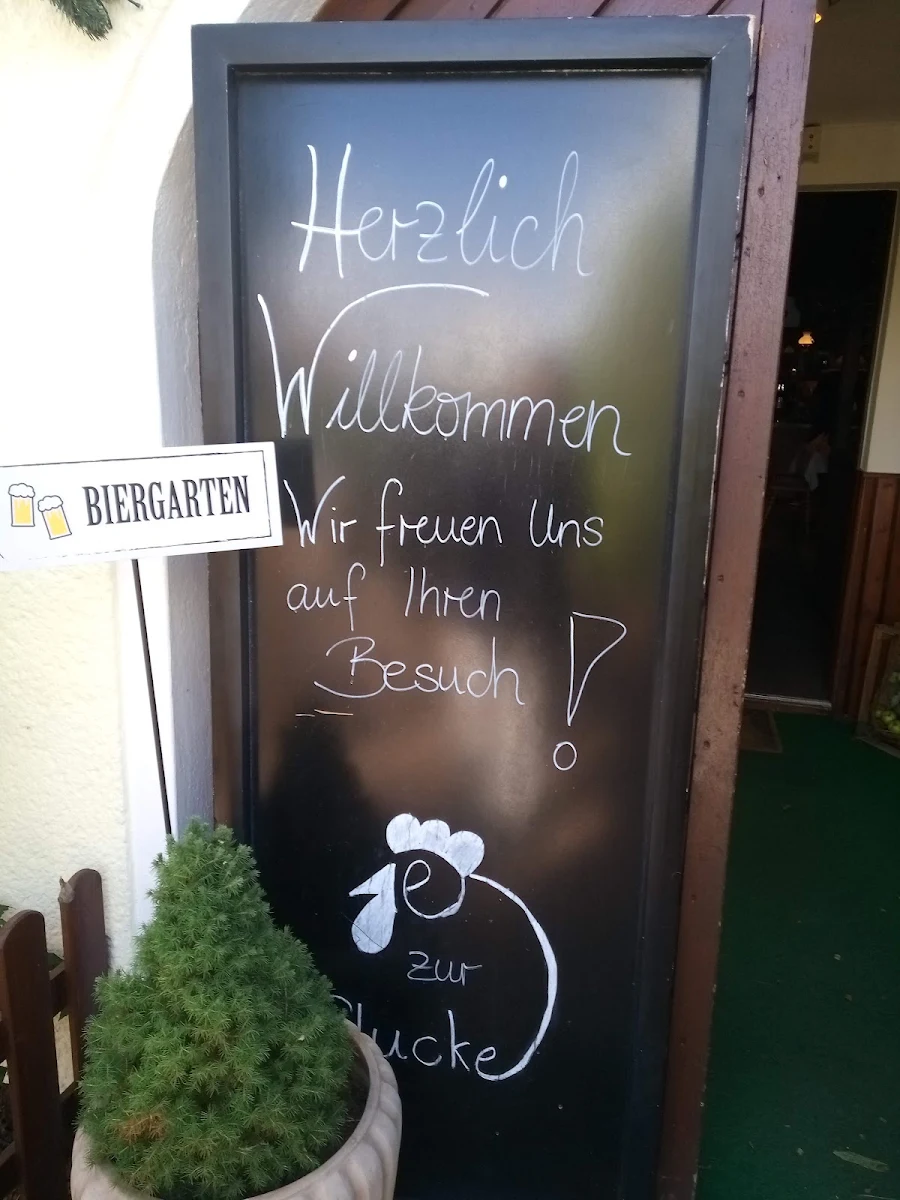 Herzlich
Willkommen
BIERGARTEN
Wir freuen Uns
auf Ihren
Besuch !
zur
Glucke